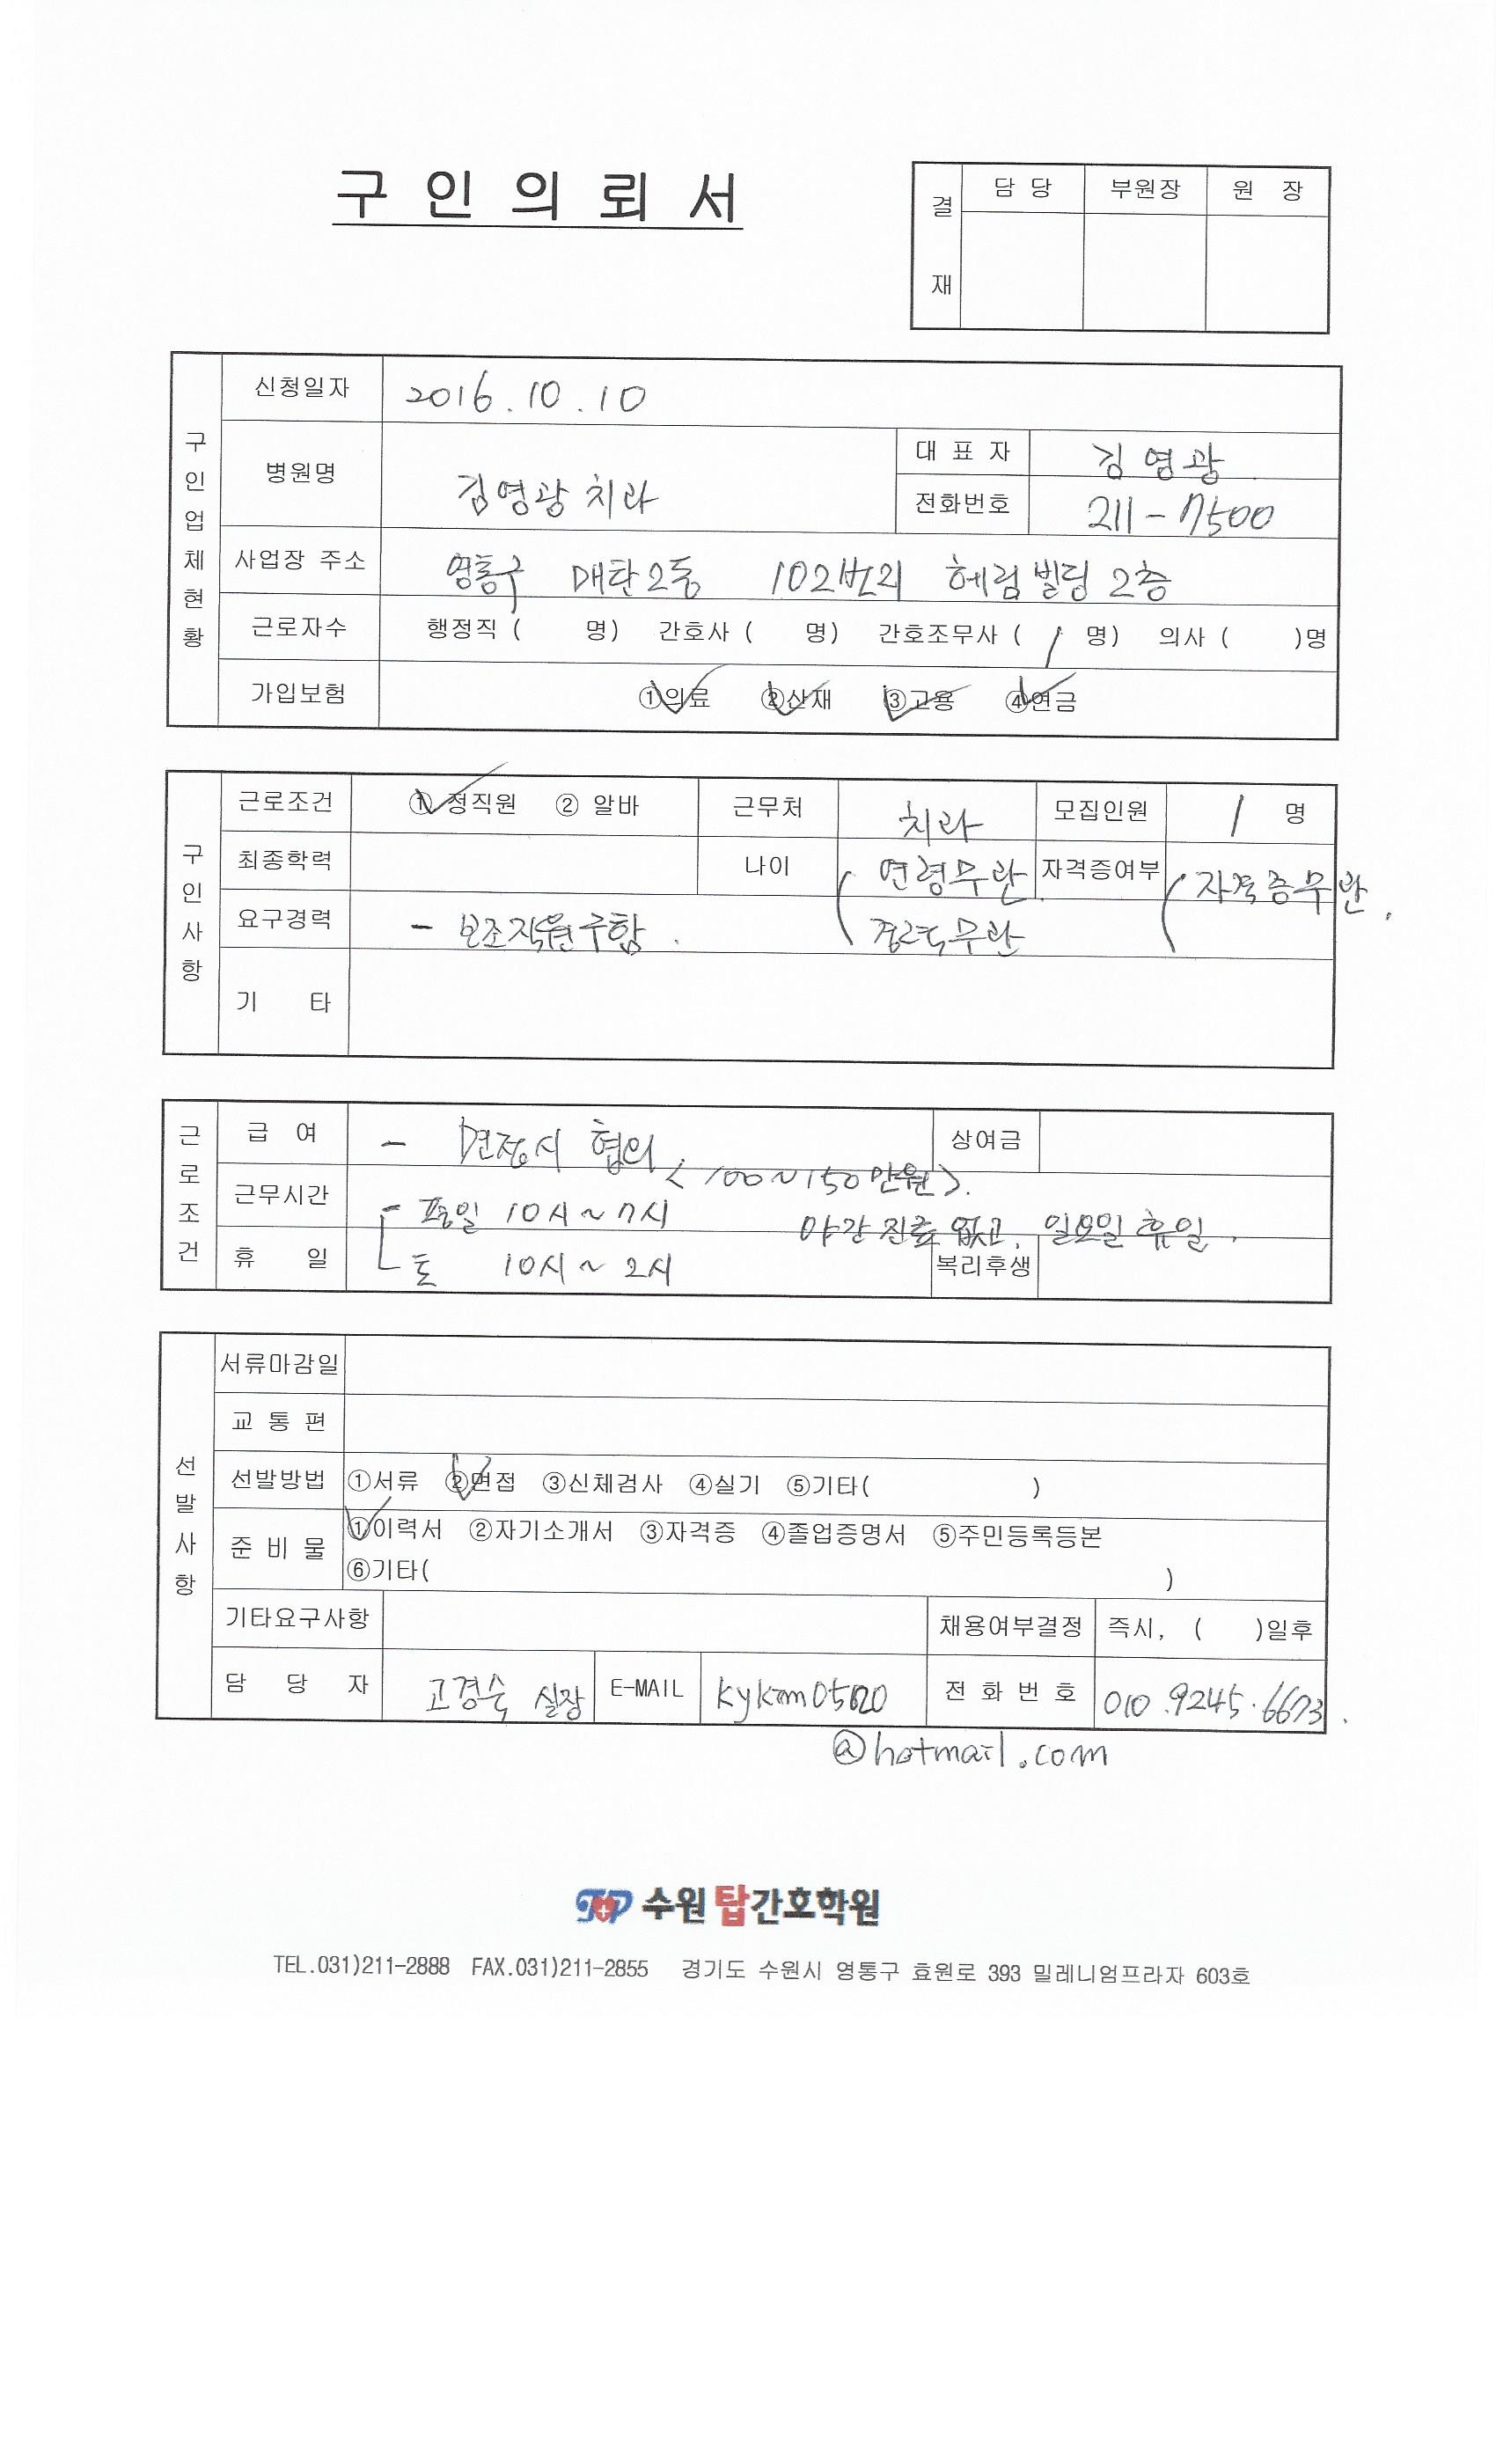 구 인 의 뢰 서
결 재 담 당 부원장 원 장
구인업체현황
신청일자 2016.10.10
병원명 김영광치과 대 표 자 김영광
전화번호 211-7500
사업장 주소 영통구 매탄2동 102번지 혜림빌딩 2층
근로자수 행정직 ( 명) 간호사 ( 명) 간호조무사 ( 1 명) 의사 ( )명
가입보험 ①의료 ②산재 ③고용 ④연금
구인사항
근로조건 ① 정직원 ② 알바 근무처 치과 모집인원 1 명
최종학력 나이 연령무관 자격증여부 자격증무관.
요구경력 - 보조직원구함. 경력무관
기 타
근로조건
급 여 - 면접시 협의 <100~150만원>. 상여금
근무시간 - 평일 10시~7시 야간진료 없고, 일요일 휴일.
휴 일 토 10시~2시 복리후생
선발사항
서류마감일
교 통 편
선발방법 ①서류 ②면접 ③신체검사 ④실기 ⑤기타( )
준 비 물 ①이력서 ②자기소개서 ③자격증 ④졸업증명서 ⑤주민등록등본
⑥기타( )
기타요구사항 채용여부결정 즉시, ( )일후
담 당 자 고경숙 실장 E-MAIL 전 화 번 호 010.9245.6673.
@hotmail.com
TOP 수원 탑간호학원
TEL.031)211-2888 FAX.031)211-2855 경기도 수원시 영통구 효원로 393 밀레니엄프라자 603호